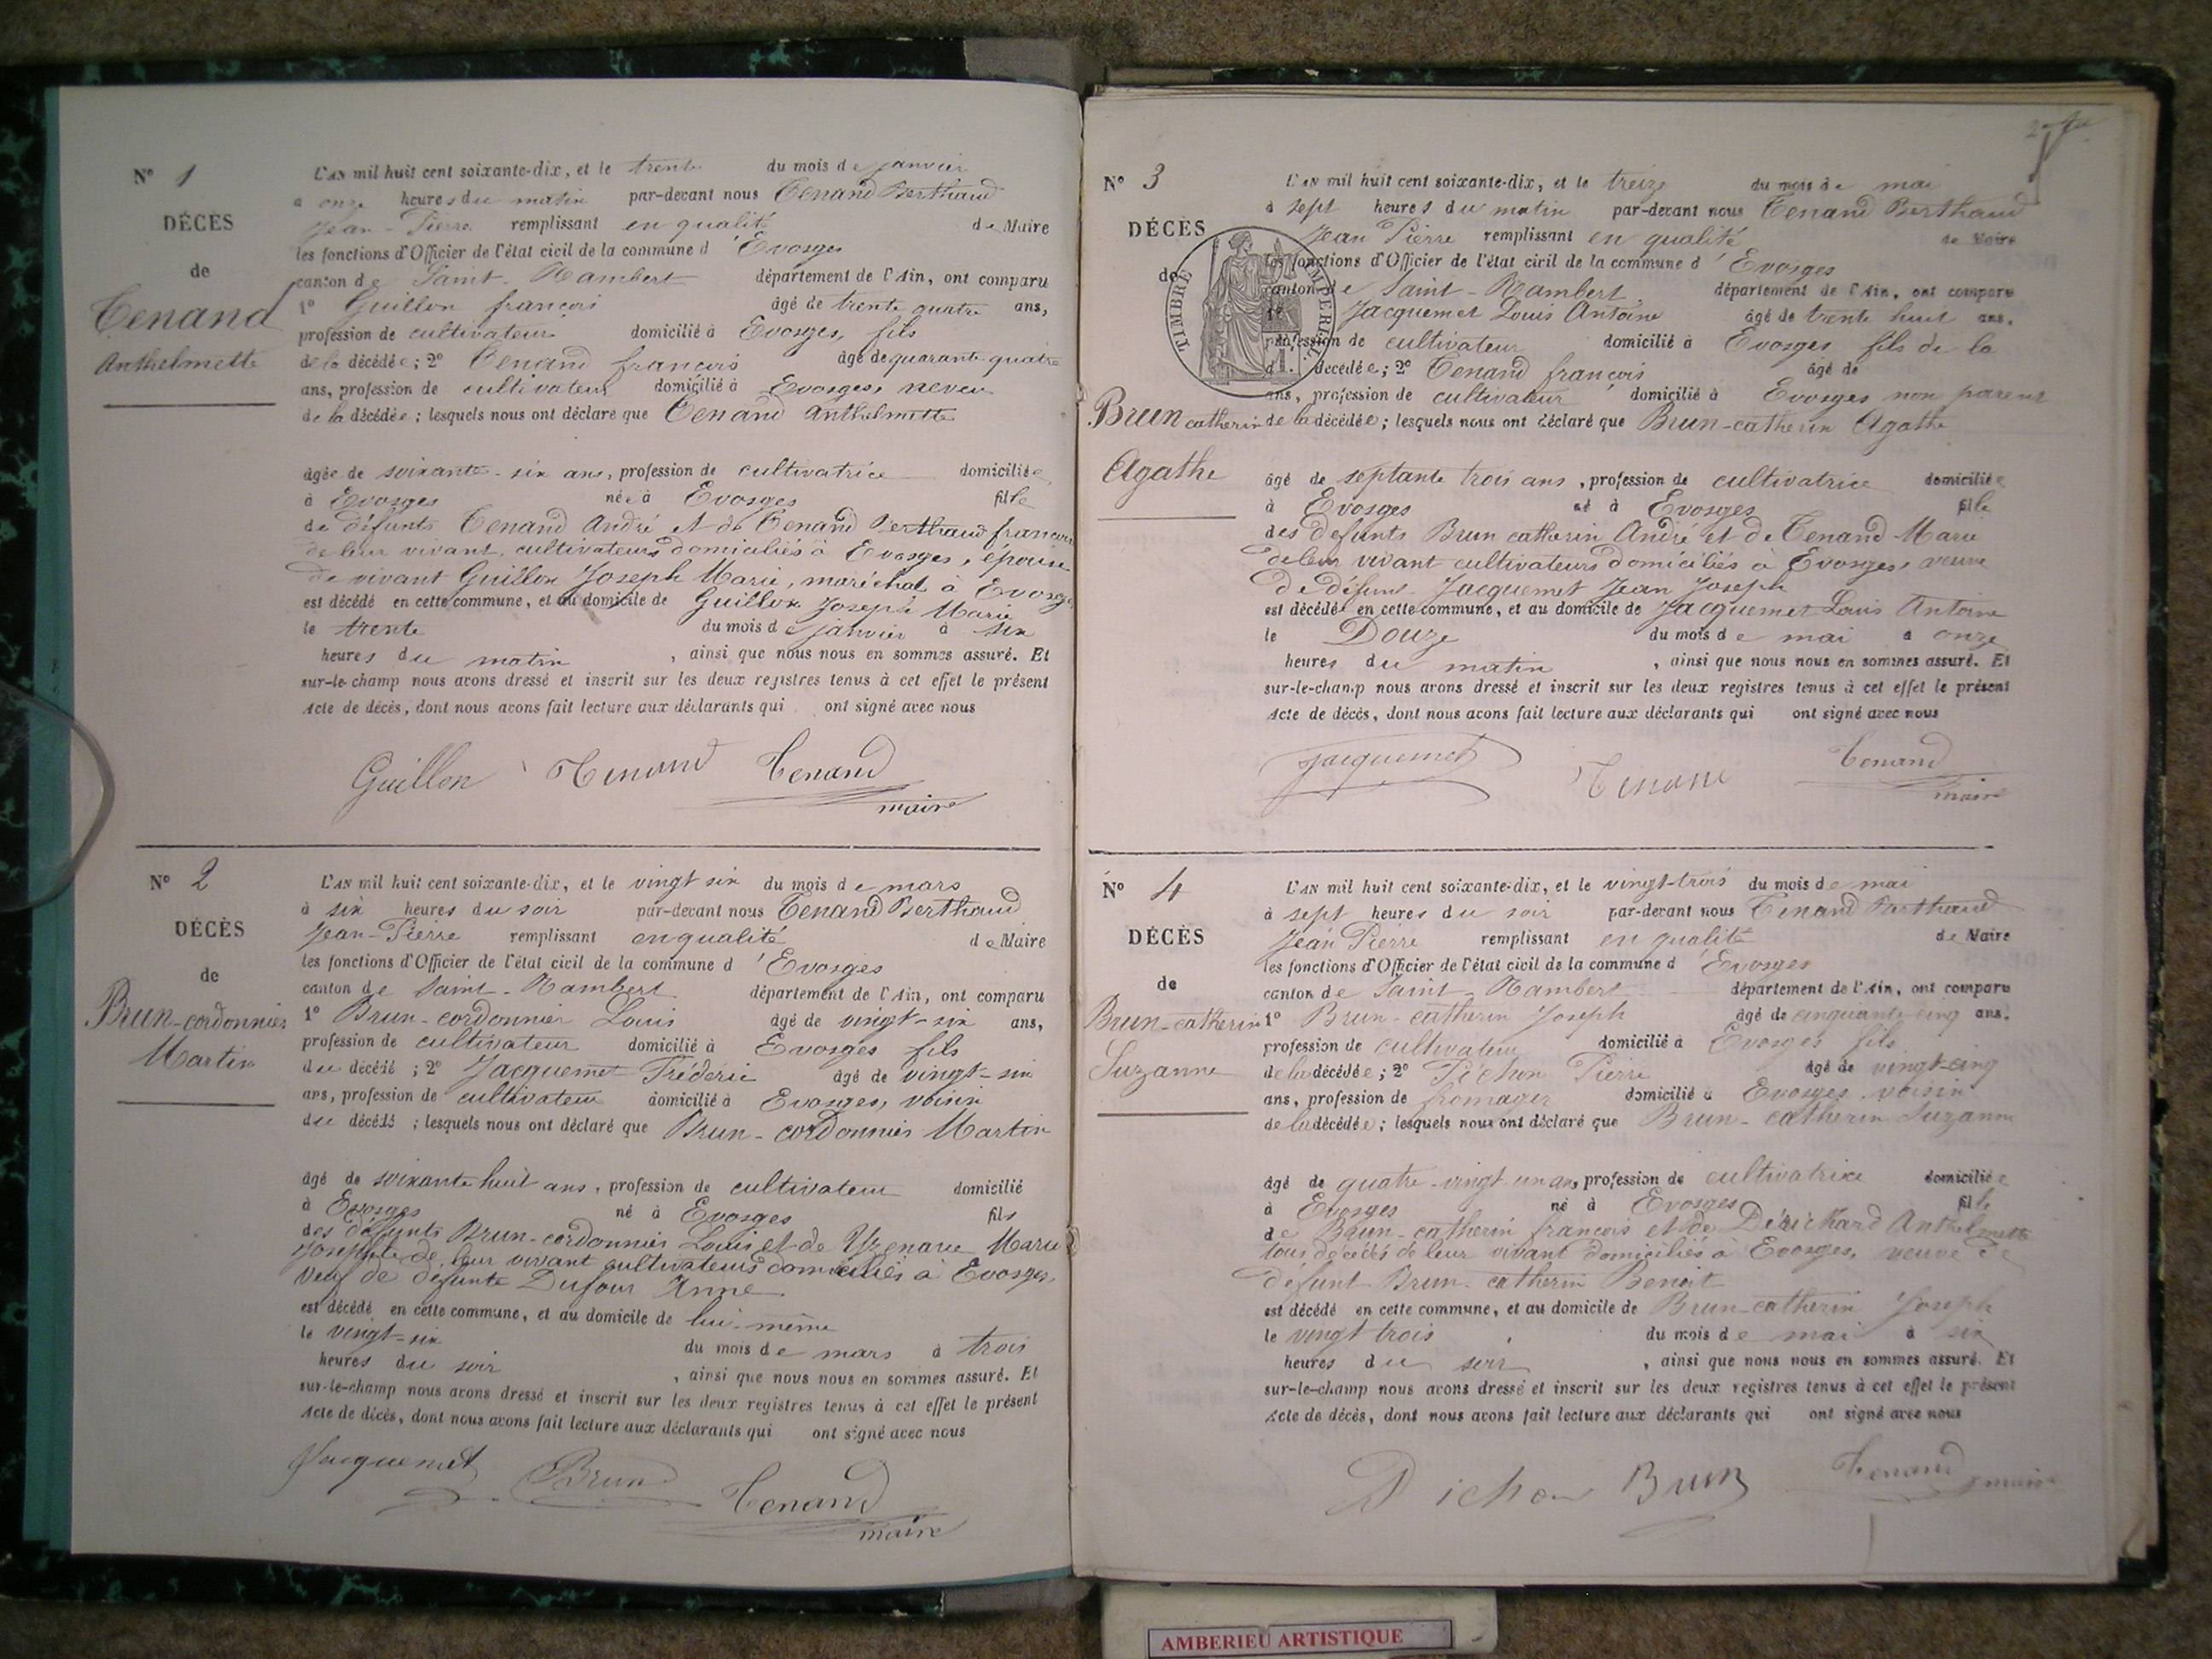 N° 1
DÉCÈS
de
Tenand
Anthelmette
L'AN mil huit cent soixante-dix, et le trente du mois de janvier
à onze heures du matin par-devant nous Tenand Berthaud
Jean-Pierre remplissant en qualité de Maire
les fonctions d'Officier de l'état civil de la commune d'Evosges
canton de Saint-Rambert département de l'Ain, ont comparu
1° Guillon françois âgé de trente quatre ans,
profession de cultivateur domicilié à Evosges, fils
de la décédée; 2° Tenand françois âgé de quarante quatre
ans, profession de cultivateur domicilié à Evosges, neveu
de la décédée; lesquels nous ont déclaré que Tenand Anthelmette
âgée de soixante-six ans, profession de cultivatrice domiciliée
à Evosges née à Evosges fille
de défunts Tenand André et de Tenand Berthaud
de leur vivant, cultivateurs domiciliés à Evosges, épouse
de vivant Guillon Joseph Marie, maréchal à Evosges
est décédé en cette commune, et au domicile de Guillon Joseph Marie
le trente du mois de janvier à six
heures du matin, ainsi que nous nous en sommes assuré. Et
sur-le-champ nous avons dressé et inscrit sur les deux registres tenus à cet effet le présent
Acte de décès, dont nous avons fait lecture aux déclarants qui ont signé avec nous
Guillon Tenand Tenand
maire
N° 2
DÉCÈS
de
Brun-cordonnier
Martin
L'AN mil huit cent soixante-dix, et le vingt six du mois de mars
à six heures du soir par-devant nous Tenand Berthaud
Jean-Pierre remplissant en qualité de Maire
les fonctions d'Officier de l'état civil de la commune d'Evosges
canton de Saint-Rambert département de l'Ain, ont comparu
1° Brun-cordonnier Louis âgé de vingt-six ans,
profession de cultivateur domicilié à Evosges fils
du décédé; 2° Jacquemet Fréderic âgé de vingt-six
ans, profession de cultivateur domicilié à Evosges, voisin
du décédé; lesquels nous ont déclaré que Brun-cordonnier Martin
âgé de soixante huit ans, profession de cultivateur domicilié
à Evosges né à Evosges fils
des défunts Brun-cordonnier Louis et de Marie
de leur vivant cultivateurs domiciliés à Evosges,
veuf de défunte Dufour Anne
est décédé en cette commune, et au domicile de lui-même
le vingt-six du mois de mars à trois
heures du soir, ainsi que nous nous en sommes assuré. Et
sur-le-champ nous avons dressé et inscrit sur les deux registres tenus à cet effet le présent
Acte de décès, dont nous avons fait lecture aux déclarants qui ont signé avec nous
Jacquemet Brun Tenand
maire
N° 3
DÉCÈS
de
TIMBRE IMPERIAL
Brun catherin
Agathe
L'AN mil huit cent soixante-dix, et le treize du mois de mai
à sept heures du matin par-devant nous Tenand Berthaud
Jean Pierre remplissant en qualité de Maire
les fonctions d'Officier de l'état civil de la commune d'Evosges
canton de Saint-Rambert, département de l'Ain, ont comparu
1° Jacquemet Louis Antoine âgé de trente huit ans.
profession de cultivateur domicilié à Evosges fils de la
décédée; 2° Tenand françois âgé de
ans, profession de cultivateur domicilié à Evosges non parent
de la décédée; lesquels nous ont déclaré que Brun-catherin Agathe
âgé de septante trois ans, profession de cultivatrice domiciliée
à Evosges né à Evosges fille
des défunts Brun catherin André et de Tenand Marie
de leur vivant cultivateurs domiciliés à Evosges veuve
de défunt Jacquemet Jean Joseph
est décédée en cette commune, et au domicile de Jacquemet Louis Antoine
le Douze du mois de mai à onze
heures du matin, ainsi que nous nous en sommes assuré. Et
sur-le-champ nous avons dressé et inscrit sur les deux registres tenus à cet effet le présent
Acte de décès, dont nous avons fait lecture aux déclarants qui ont signé avec nous
Jacquemet Tenand Tenand
maire
N° 4
DÉCÈS
de
Brun-catherin
Suzanne
L'AN mil huit cent soixante-dix, et le vingt-trois du mois de mai
à sept heures du soir par-devant nous Tenand Berthaud
Jean Pierre remplissant en qualité de Maire
les fonctions d'Officier de l'état civil de la commune d'Evosges
canton de Saint-Rambert département de l'Ain, ont comparu
1° Brun-catherin Joseph âgé de cinquante-cinq ans.
profession de cultivateur domicilié à Evosges fils
de la décédée; 2° Pichon Pierre âgé de vingt-cinq
ans, profession de fromager domicilié à Evosges voisin
de la décédée; lesquels nous ont déclaré que Brun-catherin Suzanne
âgé de quatre-vingt un ans, profession de cultivatrice domiciliée
à Evosges né à Evosges fille
de Brun-catherin françois et de Anthelmette
tous décédés de leur vivant domiciliés à Evosges, veuve de
défunt Brun-catherin Benoit
est décédé en cette commune, et au domicile de Brun-catherin Joseph
le vingt trois du mois de mai à six
heures du soir, ainsi que nous nous en sommes assuré. Et
sur-le-champ nous avons dressé et inscrit sur les deux registres tenus à cet effet le présent
Acte de décès, dont nous avons fait lecture aux déclarants qui ont signé avec nous
Pichon Brun Tenand maire
AMBERIEU ARTISTIQUE